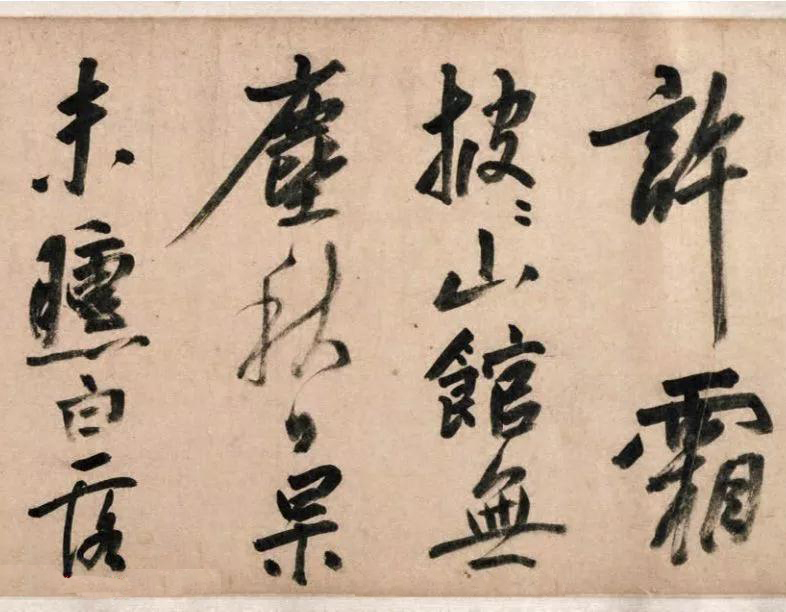 許霜
披〻山館無
塵秋日杲
未曛白露